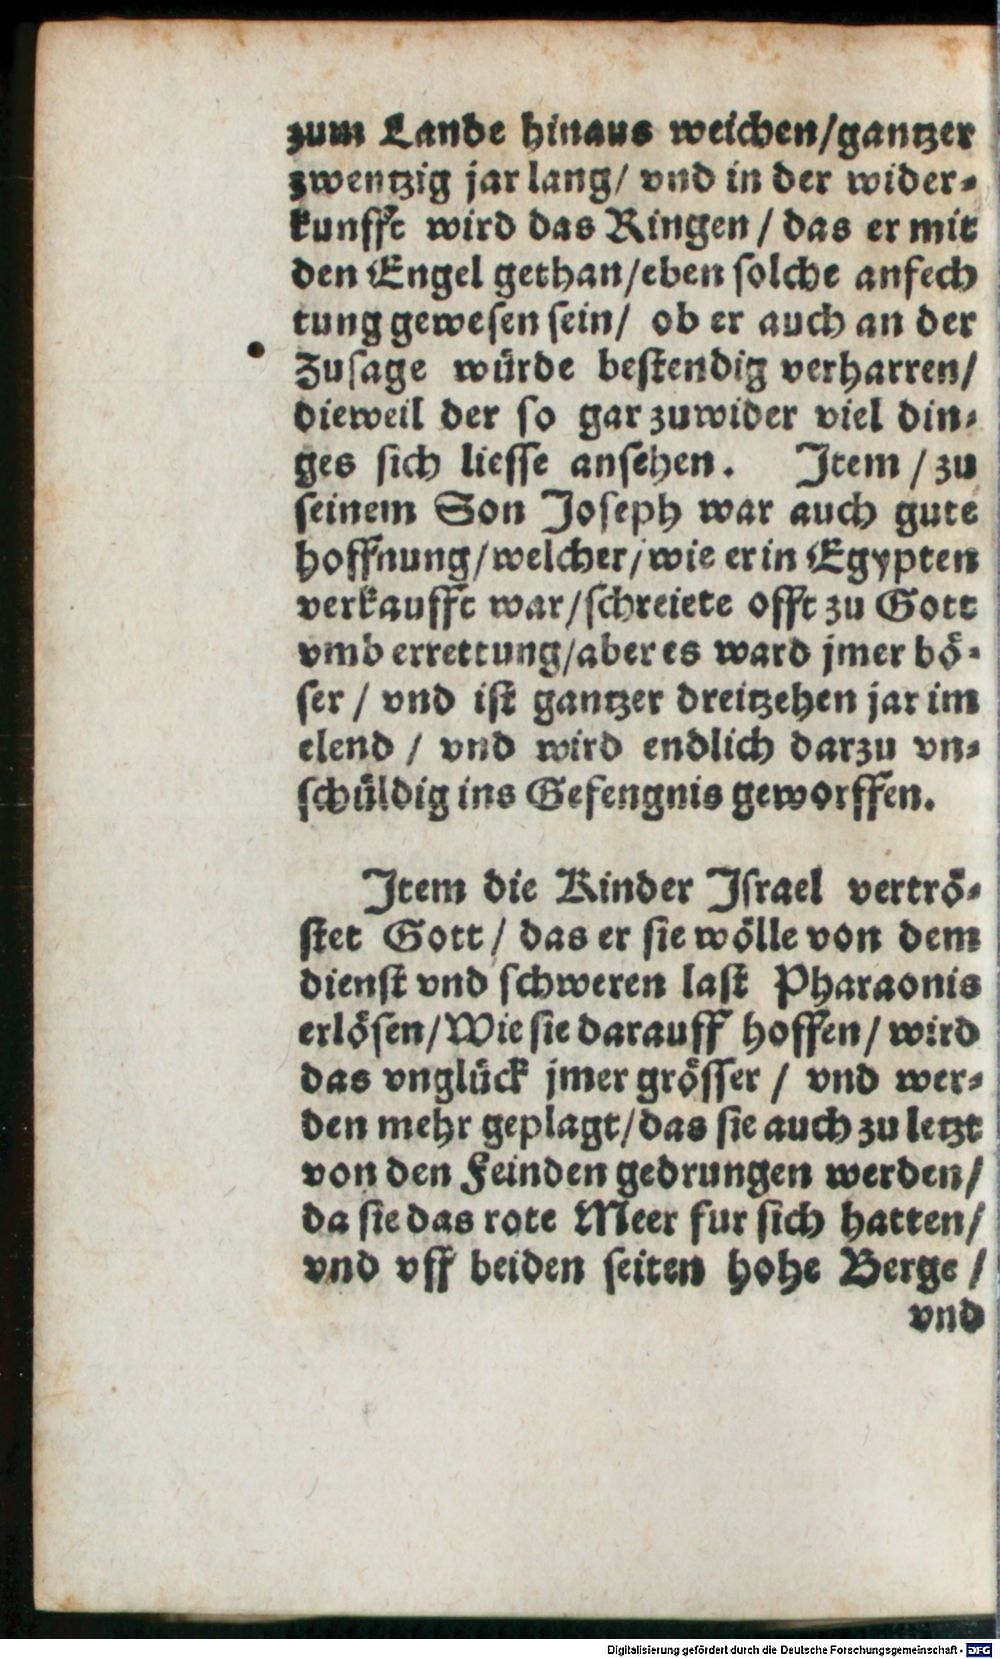 zum Lande hinaus weichen/gantzer
zwentzig jar lang/ vnd in der wider-
kunfft wird das Ringen / das er mit
den Engel gethan/eben solche anfech
tung gewesen sein/ ob er auch an der
Zusage würde bestendig verharren/
dieweil der so gar zuwider viel din-
ges sich liesse ansehen. Item / zu
seinem Son Joseph war auch gute
hoffnung/welcher/wie er in Egypten
verkaufft war/schreiete offt zu Gott
vmb errettung/aber es ward jmer bö-
ser / vnd ist gantzer dreitzehen jar im
elend / vnd wird endlich darzu vn-
schüldig ins Gefengnis geworffen.
Item die Kinder Israel vertrö-
stet Gott/ das er sie wölle von dem
dienst vnd schweren last Pharaonis
erlösen/Wie sie darauff hoffen/ wird
das vnglück jmer grösser / vnd wer-
den mehr geplagt/das sie auch zu letzt
von den Feinden gedrungen werden/
da sie das rote Meer fur sich hatten/
vnd vff beiden seiten hohe Berge /
vnd
Digitalisierung gefördert durch die Deutsche Forschungsgemeinschaft - DFG